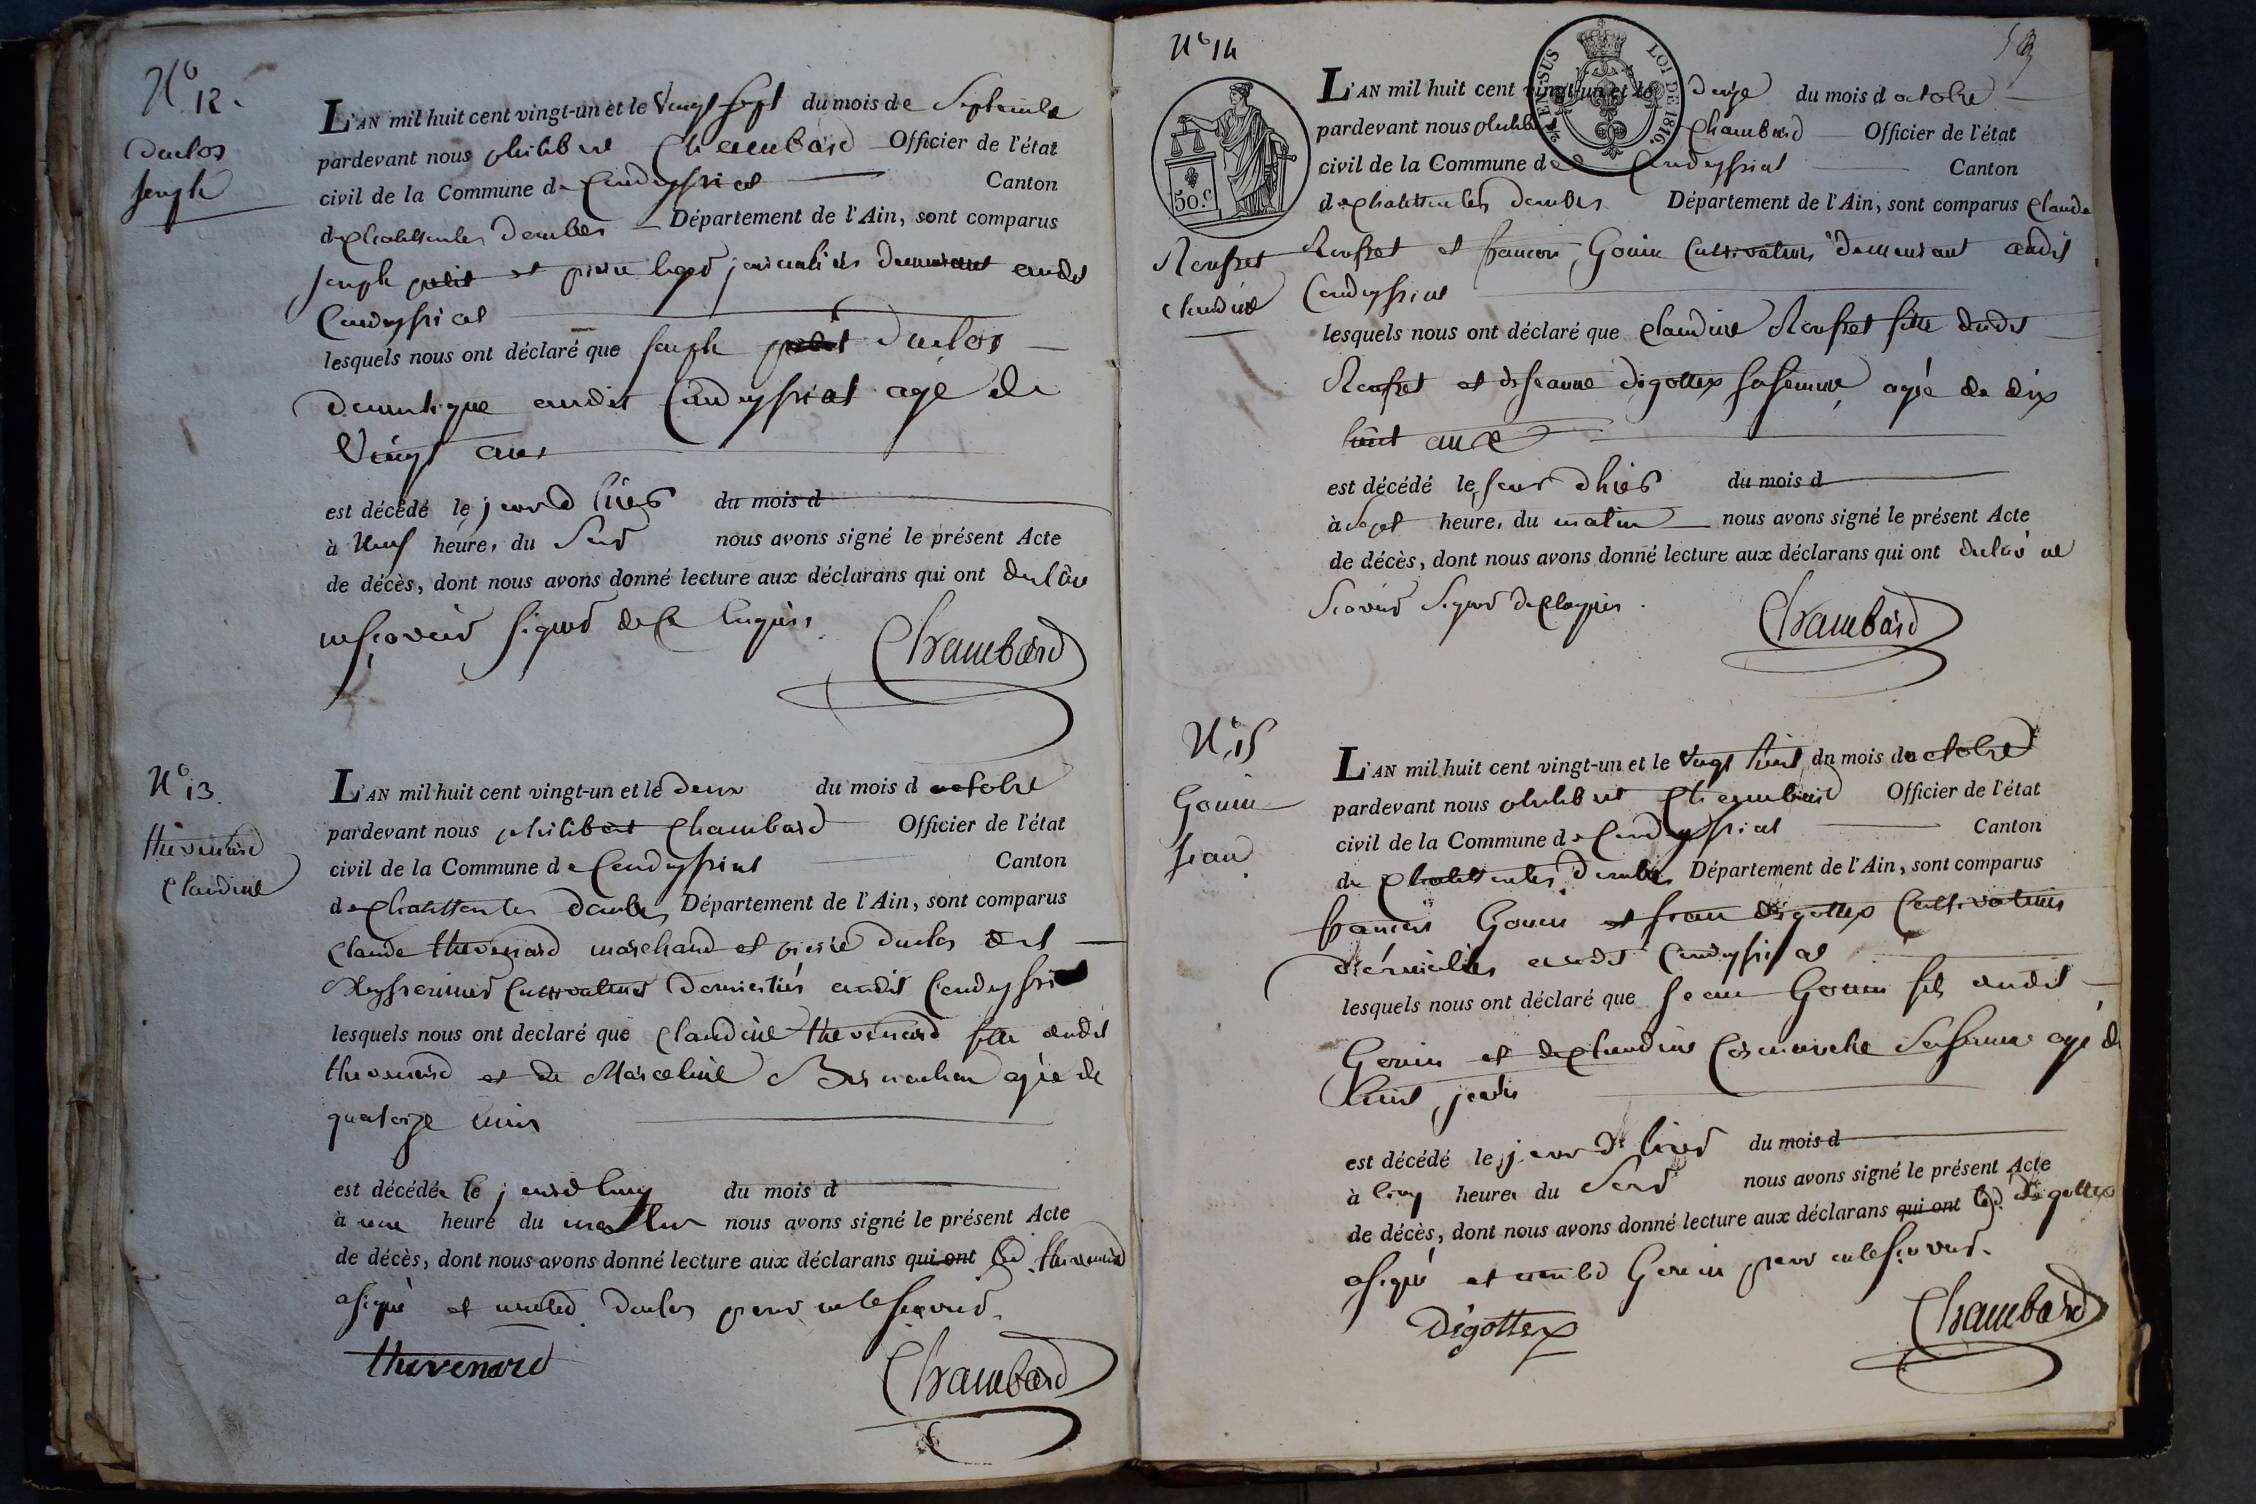 N° 12.
Duclos
Joseph
L'AN mil huit cent vingt-un et le vingt sept du mois de Septembre
pardevant nous philibert Chambard Officier de l'état
civil de la Commune de Condeyssiat Canton
de chatillon les dombes Département de l'Ain, sont comparus
joseph petit et pierre journaliers demeurant audit
Condeyssiat
lesquels nous ont déclaré que joseph Duclos
domestique audit Condeyssiat agé de
vingt ans
est décédé le jour d hier du mois d
à neuf heure, du Soir nous avons signé le présent Acte
de décès, dont nous avons donné lecture aux déclarans qui ont declare
ne scavoir signer de ce enquis
Chambard
N° 13.
thevenard
Claudine
L'AN mil huit cent vingt-un et le deux du mois d octobre
pardevant nous philibert Chambard Officier de l'état
civil de la Commune de Condeyssiat Canton
de chatillon les dombes Département de l'Ain, sont comparus
Claude thevenard marchand et pierre duclos dit
cultivateur domiciliés audit Condeyssiat
lesquels nous ont declaré que Claudine thevenard fille dudit
thevenard et de Marceline agée de
quatorze mois
est décédée le jourdhuy du mois d
à une heure du matin nous avons signé le présent Acte
de décès, dont nous avons donné lecture aux déclarans qui ont led. thevenard
a signé et non led duclos pour ne le scavoir.
thevenard
Chambard
N° 14
53
50.c
EN SUS
LOI DE 1816.
Roufset
Claudine
L'AN mil huit cent vingt-un et le douze du mois d octobre
pardevant nous philibert Chambard Officier de l'état
civil de la Commune de Condeyssiat Canton
de chatillon les dombes Département de l'Ain, sont comparus Claude
Roufset et francois Gouin cultivateurs demeurant audit
Condeyssiat
lesquels nous ont déclaré que Claudine Roufset fille dudit
Roufset et de jeanne digottex sa femme, agée de dix
huit ans
est décédé le jour d hier du mois d
à Sept heure, du matin nous avons signé le présent Acte
de décès, dont nous avons donné lecture aux déclarans qui ont declaré ne
Scavoir Signer de ce enquis.
Chambard
N° 15
Gouin
jean
L'AN mil huit cent vingt-un et le vingt huit du mois d octobre
pardevant nous philibert Chambard Officier de l'état
civil de la Commune de Condeyssiat Canton
de chatillon les dombes Département de l'Ain, sont comparus
francois Gouin et jean digottex cultivateurs
domiciliés audit Condeyssiat
lesquels nous ont déclaré que jean Gouin fils dudit
Gouin et de claudine Sa femme agé de
huit jours
est décédé le jour d hier du mois d
à cinq heures du Soir nous avons signé le présent Acte
de décès, dont nous avons donné lecture aux déclarans qui ont led. digottex
a signé et non led Gouin pour ne le scavoir.
Digottex
Chambard